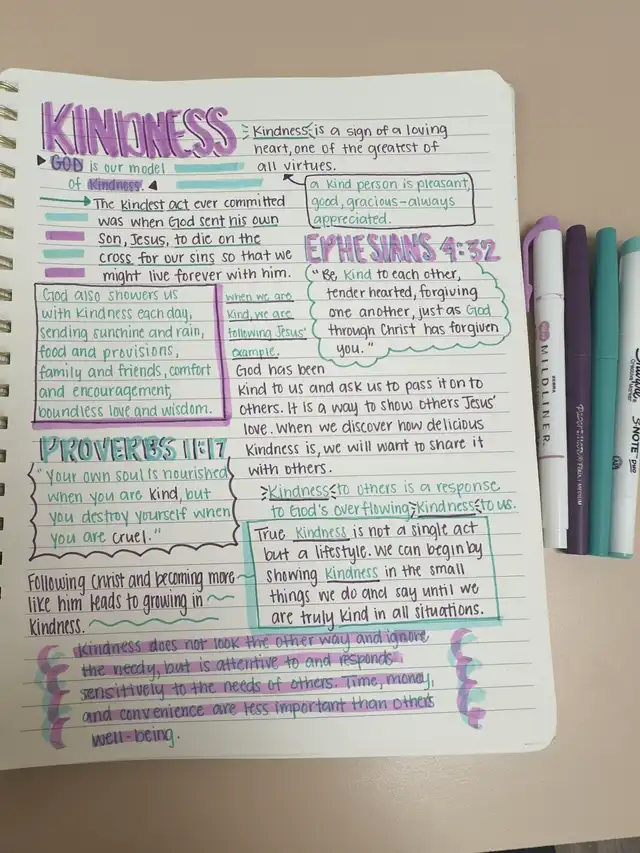 KINDNESS
Kindness is a sign of a loving
heart, one of the greatest of
all virtues.
GOD is our model
of Kindness.
a kind person is pleasant,
good, gracious-always
appreciated.
The kindest act ever committed
was when God sent his own
Son, Jesus, to die on the
cross for our sins so that we
might live forever with him.
EPHESIANS 4:32
"Be Kind to each other,
tender hearted, forgiving
one another, just as God
through Christ has forgiven
you."
God also showers us
with kindness each day,
sending sunshine and rain,
food and provisions,
family and friends, comfort
and encouragement,
boundless love and wisdom.
when we are
kind, we are
following Jesus'
example.
God has been
kind to us and ask us to pass it on to
others. It is a way to show others Jesus'
love. When we discover how delicious
kindness is, we will want to share it
with others.
PROVERBS 11:17
"Your own soul is nourished
when you are kind, but
you destroy yourself when
you are cruel."
Kindness to others is a response
to God's overflowing kindness to us.
True kindness is not a single act
but a lifestyle. We can begin by
showing kindness in the small
things we do and say until we
are truly kind in all situations.
Following Christ and becoming more
like him leads to growing in
kindness.
Kindness does not look the other way and ignore
the needy, but is attentive to and responds
sensitively to the needs of others. Time, money,
and convenience are less important than others
well-being.
ZEBRA
MILDLINER
S.NOTE